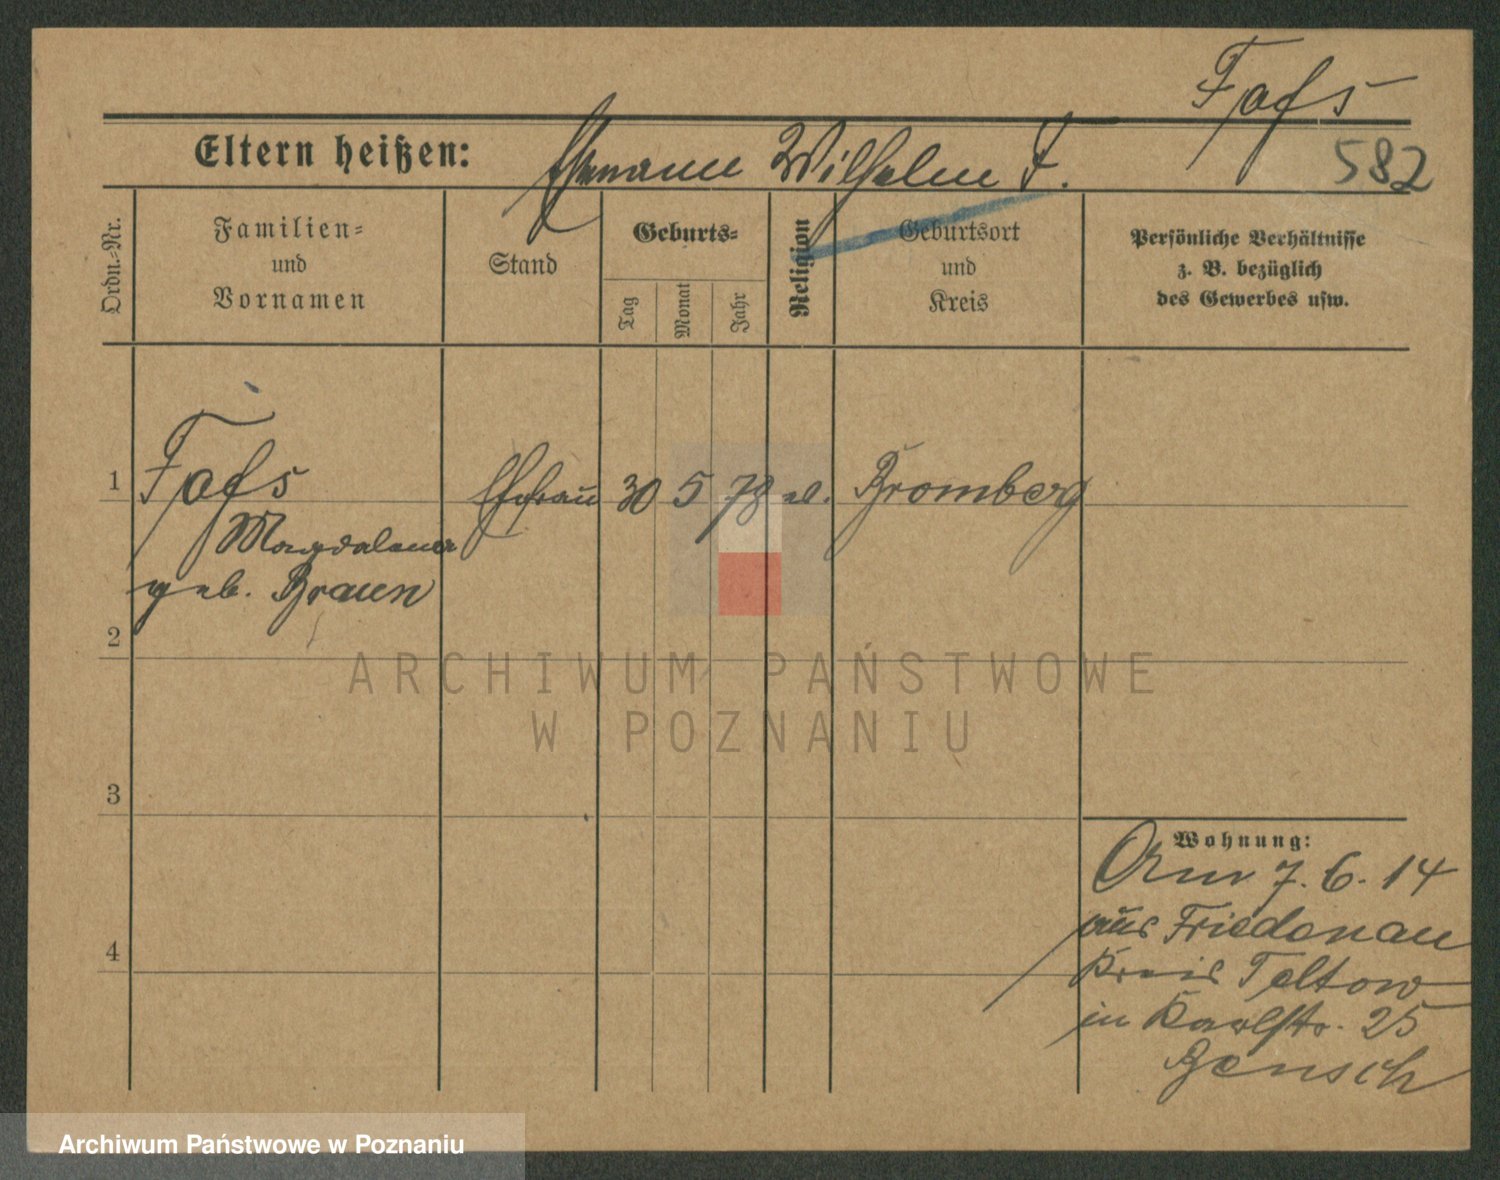 Fahs
Eltern heißen: Ehemann Wilhelm F.
582
Ordn.-Nr.
Familien-
und
Vornamen
Stand
Geburts-
Tag
Monat
Jahr
Religion
Geburtsort
und
Kreis
Persönliche Verhältnisse
z. B. bezüglich
des Gewerbes usw.
1 Fahs Ehefrau 30 5 78 ev. Bromberg
Magdalena
geb. Braun
2
ARCHIWUM PAŃSTWOWE
W POZNANIU
3
Wohnung:
Am 7. 6. 14
aus Friedenau
4
Kreis Teltow
in Karlstr. 25
Bensch
Archiwum Państwowe w Poznaniu